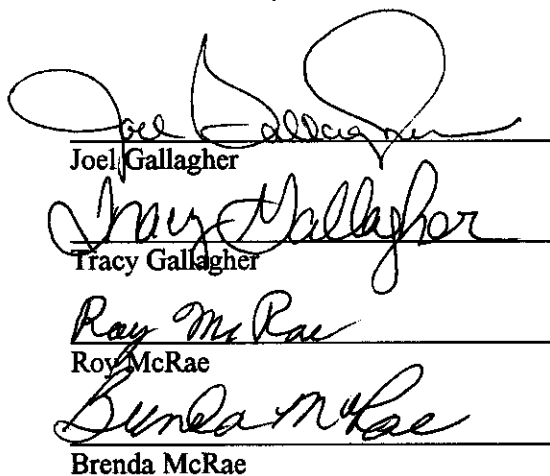 Joel Gallagher
Joel Gallagher
Tracy Gallagher
Tracy Gallagher
Roy McRae
Roy McRae
Brenda McRae
Brenda McRae